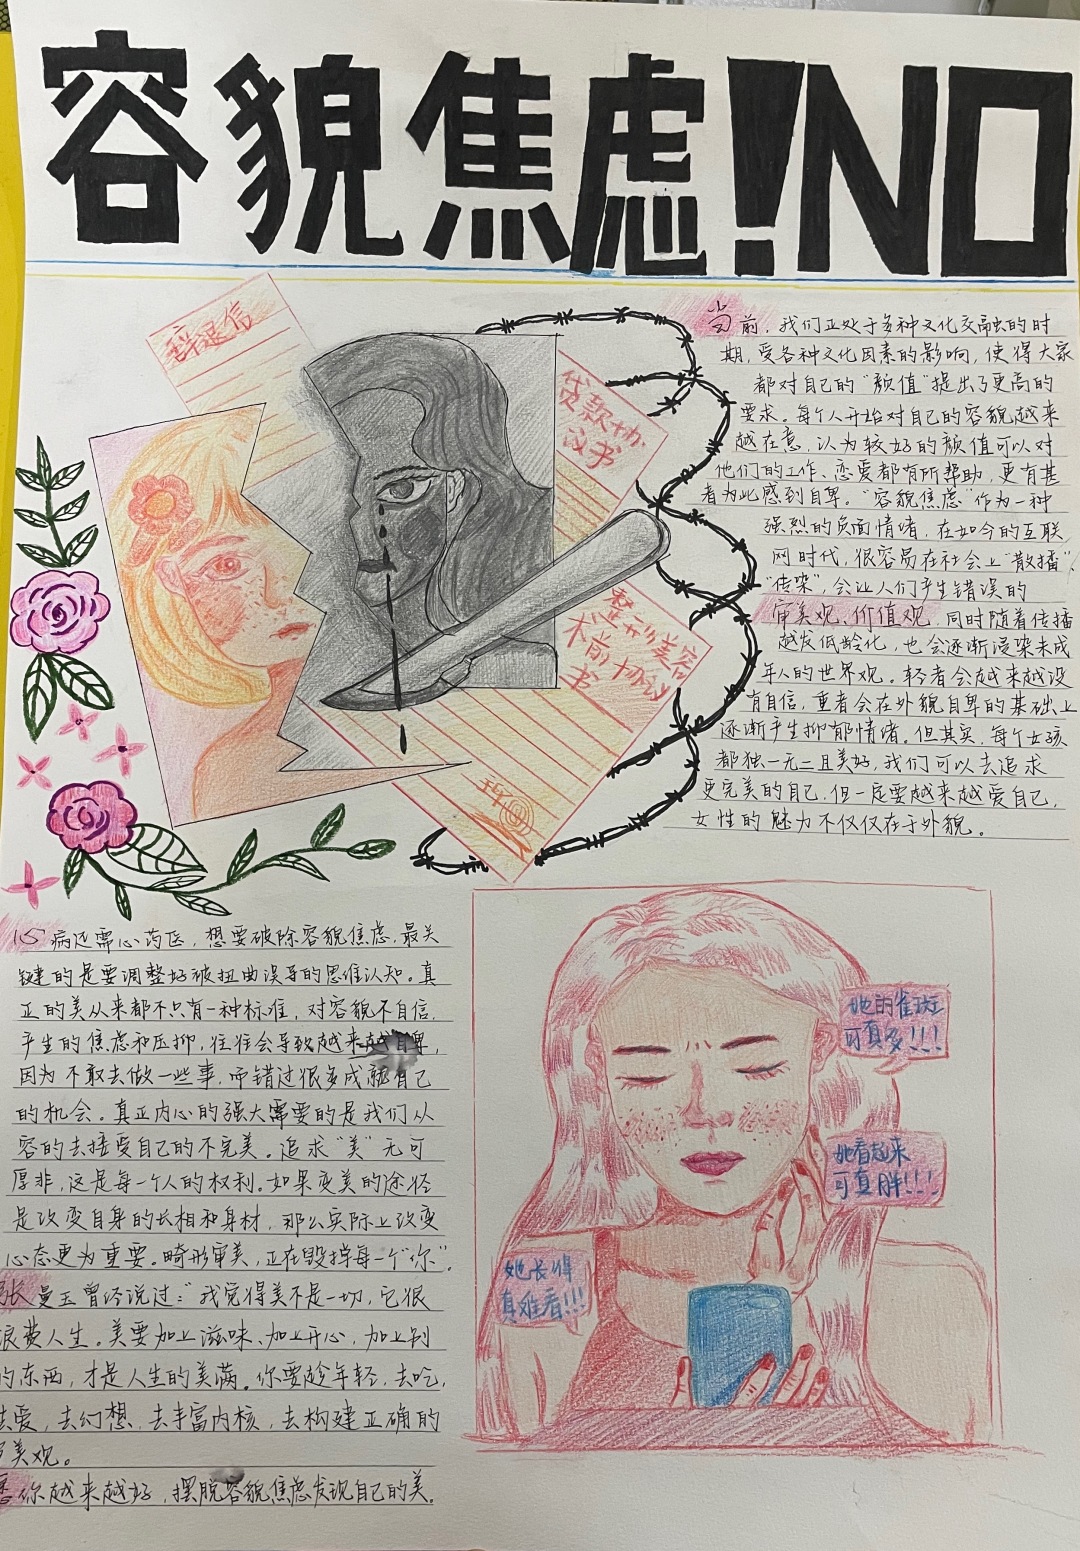 容貌焦虑!NO
辞退信
贷款协
议书
整形美容
术前协议
书
当前，我们正处于多种文化交融的时
期，受各种文化因素的影响，使得大家
都对自己的“颜值”提出了更高的
要求。每个人开始对自己的容貌越来
越在意，认为较好的颜值可以对
他们的工作、恋爱都有所帮助，更有甚
者为此感到自卑。“容貌焦虑”作为一种
强烈的负面情绪，在如今的互联
网时代，很容易在社会上“散播”、
“传染”，会让人们产生错误的
审美观、价值观，同时随着传播
越发低龄化，也会逐渐浸染未成
年人的世界观。轻者会越来越没
有自信，重者会在外貌自卑的基础上
逐渐产生抑郁情绪。但其实，每个女孩
都独一无二且美好，我们可以去追求
更完美的自己，但一定要越来越爱自己，
女性的魅力不仅仅在于外貌。
心病还需心药医，想要破除容貌焦虑，最关
键的是要调整好被扭曲误导的思维认知。真
正的美从来都不只有一种标准，对容貌不自信，
产生的焦虑和压抑，往往会导致越来越自卑，
因为不敢去做一些事，而错过很多成就自己
的机会。真正内心的强大需要的是我们从
容的去接受自己的不完美。追求“美”无可
厚非，这是每一个人的权利。如果变美的途径
是改变自身的长相和身材，那么实际上改变
心态更为重要。畸形审美，正在毁掉每一个“你”。
张曼玉曾经说过：“我觉得美不是一切，它很
浪费人生。美要加上滋味、加上开心，加上别
的东西，才是人生的美满。你要趁年轻，去吃，
去爱，去幻想，去丰富内核，去构建正确的
审美观。
愿你越来越好，摆脱容貌焦虑发现自己的美。
她的雀斑
可真多!!!
她看起来
可真胖!!!
她长得
真难看!!!